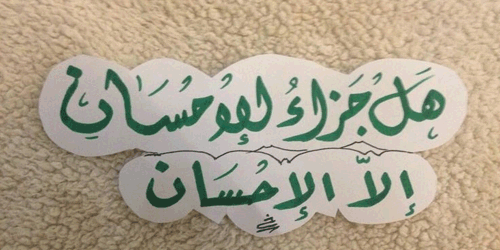 هَل جَزَاءُ الإحْسَانِ
إلاّ الإحْسَان